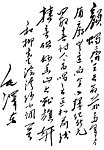 颜斶齐王各命前多年矛
盾廓无边而今一扫新纪
元最喜诗人高唱至正和前线
捷音联妙香山上战旗妍
和柳亚子先生浣溪沙
毛泽东